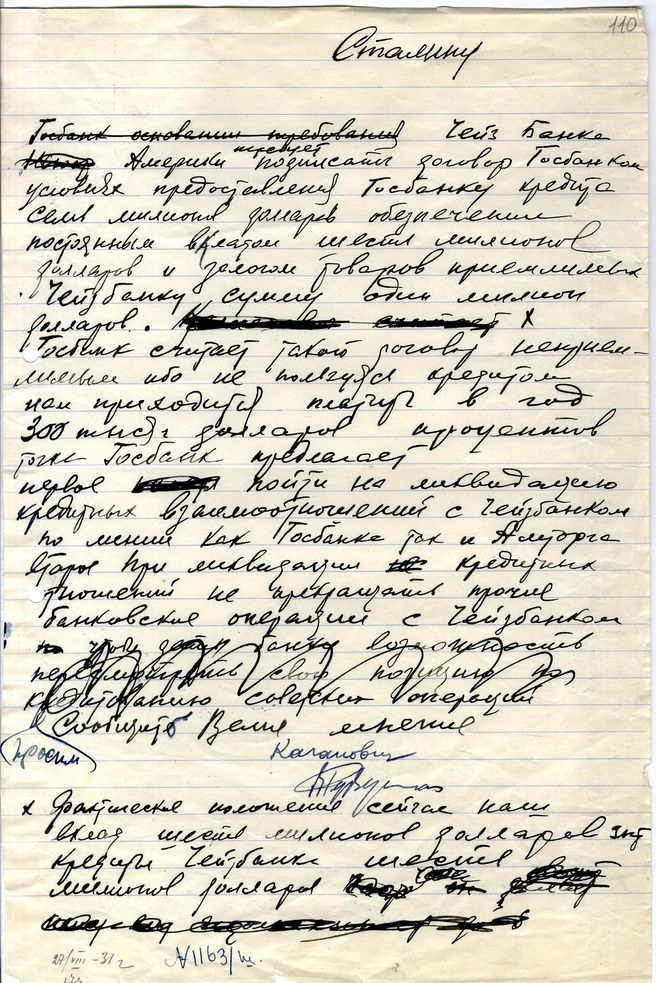 110
Сталину
Госбанк основании требования Чейз Банка
Америки требует подписать договор Госбанком
условиях предоставления Госбанку кредита
семь милионов долларов обеспечении
постоянным вкладом шести милионов
долларов и залогом товаров приемлимых
Чейзбанку сумму один милион
долларов. x
Госбанк считает такой договор неприем-
лимым ибо не пользуясь кредитом
нам приходится платить в год
300 тысяч долларов процентов
точка Госбанк предлагает
первое пойти на ликвидацию
кредитных взаимоотношений с Чейзбанком
по линии как Госбанка так и Амторга
второе при ликвидации кредитных
отношений не прекращать прочие
банковские операции с Чейзбанком
чтобы дать банку возможность
пересмотреть свою позицию по
кредитованию советских операций
Сообщите Ваше мнение
Просим
Каганович
x Фактическое положение сейчас наш
вклад шесть милионов долларов зпт
кредиты Чейзбанка шесть
милионов долларов
27/VIII-31 г
N1163/ш.